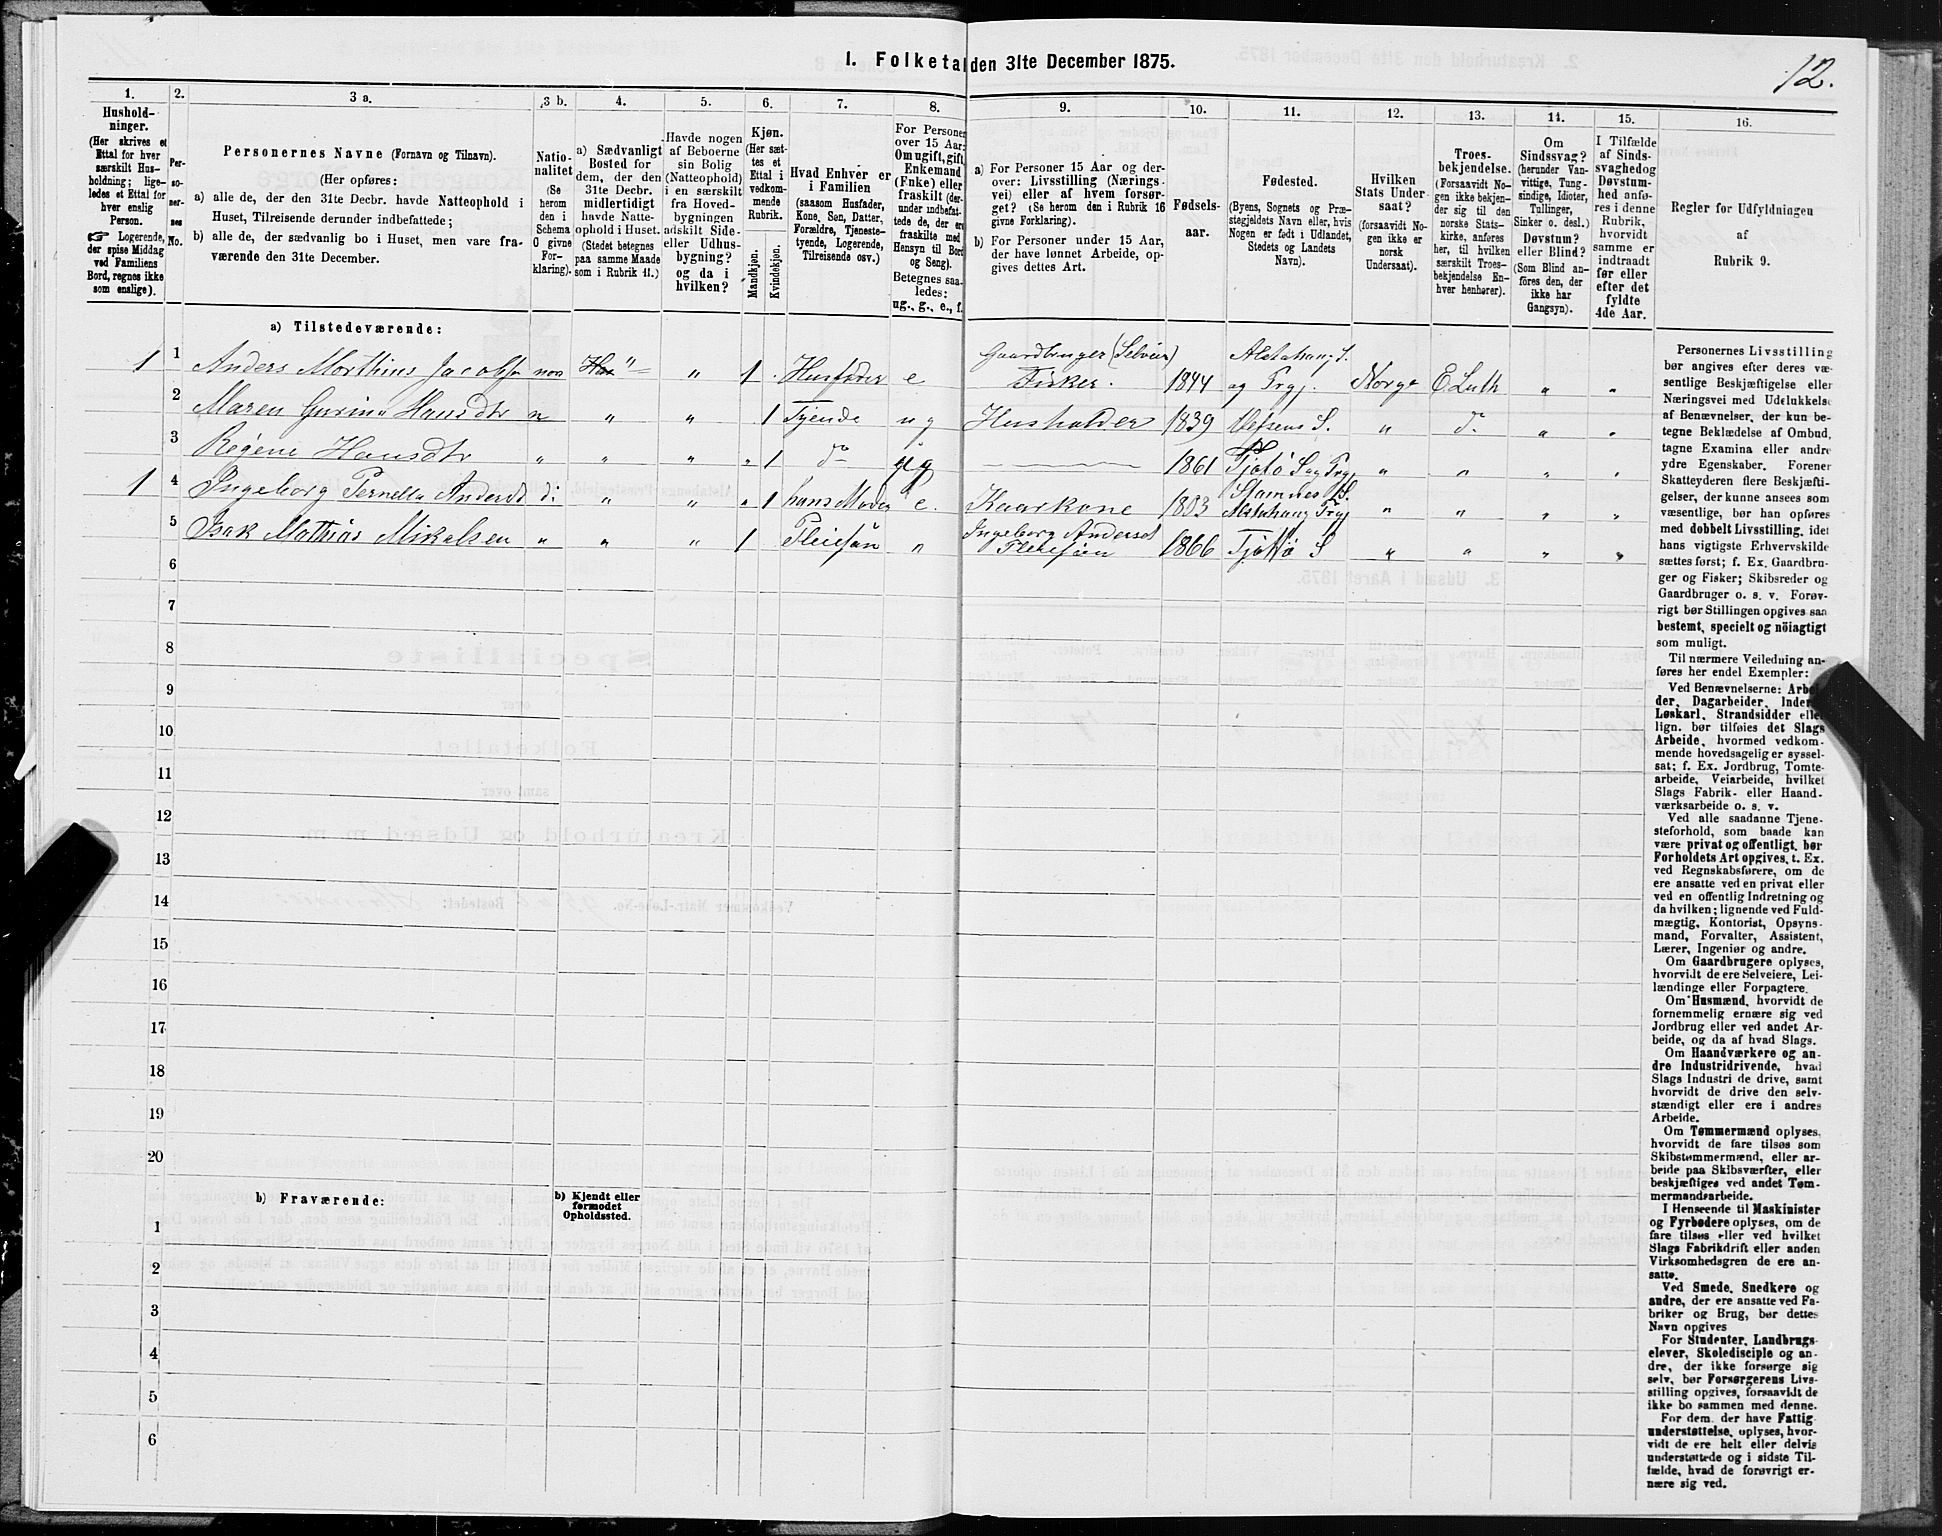 I. Folketal den 31te December 1875.
12.
1.
Hushold-
ninger.
(Her skrives et
Ettal for hver
særskilt Hus-
holdning; lige-
ledes et Ettal for
hver enslig
Person.
☞ Logerende,
der spise Middag
ved Familiens
Bord, regnes ikke
som enslige).
2.
Per-
so-
ner-
nes
No.
3 a.
Personernes Navne (Fornavn og Tilnavn).
(Her opføres:
a) alle de, der den 31te Decbr. havde Natteophold i
Huset, Tilreisende derunder indbefattede;
b) alle de, der sædvanlig bo i Huset, men vare fra-
værende den 31te December.
3 b.
Natio-
nalitet
(Se
herom
den i
Schema
O givne
For-
klaring).
4.
a) Sædvanligt
Bosted for
dem, der den
31te Decbr.
midlertidigt
havde Natte-
ophold i Huset.
(Stedet betegnes
paa samme Maade
som i Rubrik 11.)
5.
Havde nogen
af Beboerne
sin Bolig
(Natteophold)
i en særskilt
fra Hoved-
bygningen
adskilt Side-
eller Udhus-
bygning?
og da i
hvilken?
6.
Kjøn.
(Her sæt-
tes et
Ettal i
vedkom-
mende
Rubrik.
Mandkjøn.
Kvindekjøn.
7.
Hvad Enhver er
i Familien
(saasom Husfader,
Kone, Søn, Datter,
Forældre, Tjeneste-
tyende, Logerende,
Tilreisende osv.)
8.
For Personer
over 15 Aar:
Om ugift, gift,
Enkemand
(Enke) eller
fraskilt (der-
under indbefat-
tede de, der ere
fraskilte med
Hensyn til Bord
og Seng).
Betegnes saa-
ledes:
ug., g., e., f.
9.
a) For Personer 15 Aar og der-
over: Livsstilling (Nærings-
vei) eller af hvem forsør-
get? (Se herom den i Rubrik 16
givne Forklaring).
b) For Personer under 15 Aar,
der have lønnet Arbeide, op-
gives dettes Art.
10.
Fødsels-
aar.
11.
Fødested.
(Byens, Sognets og Præ-
stegjeldets Navn eller, hvis
Nogen er født i Udlandet,
Stedets og Landets
Navn).
12.
Hvilken
Stats Under
saat?
(forsaavidt No-
gen ikke er
norsk
Undersaat).
13.
Troes-
bekjendelse.
(Forsaavidt No-
gen ikke bekjen-
der sig til den
norske Stats-
kirke, anføres
her, til hvilken
særskilt Troes-
bekjendelse En-
hver henhører).
14.
Om
Sindssvag?
(herunder Van-
vittige, Tung-
sindige, Idioter,
Tullinger,
Sinker o. desl.)
Døvstum?
eller Blind?
(Som Blind an-
føres den, der
ikke har
Gangsyn).
15.
I Tilfælde
af Sinds-
svaghed og
Døvstum-
hed anfø-
res i denne
Rubrik,
hvorvidt
samme er
indtraadt
før eller
efter det
fyldte
4de Aar.
16.
Regler for Udfyldningen
af
Rubrik 9.
a) Tilstedeværende:
1 1 Anders Morthius Jacobs nors " " 1 . Husfader e Gaardbruger (Selveier) Fisker. 1844 Alstahaug S. og Prgj. Norge E Luth " "
2 Maren Gurine Hansdtr n " " . 1 Tyende u g Husholder 1839 Vefsens S. " do " "
3 Regine Hansdtr " " " " 1 do ug 1861 Tjøtø S og Prgj " " " "
1 4 Ingeborg Pernella Andersd d: " " " 1 hans Moder e. Kaarkone 1803 Stamnes S. Alstahaug Prgj " " " "
5 Isak Mathias Mikalsen " " " 1 Pleiesøn " Ingeborg Andersd Pleiesøn 1866 Tjøttø S " " " "
6
7
8
9
10
11
12
13
14
15
16
17
18
19
20
b) Fraværende:
b) Kjendt eller
formodet
Opholdssted.
1
2
3
4
5
6
Personernes Livsstilling
bør angives efter deres væ-
sentlige Beskjæftigelse eller
Næringsvei med Udelukkelse
af Benævnelser, der kun be-
tegne Beklædelse af Ombud,
tagne Examina eller andre
ydre Egenskaber. Forener
Skatteyderen flere Beskjæfti-
gelser, der kunne ansees som
væsentlige, bør han opføres
med dobbelt Livsstilling, idet
hans vigtigste Erhvervskilde
sættes først; f. Ex. Gaardbru-
ger og Fisker; Skibsreder og
Gaardbruger o. s. v. Forøv-
rigt bør Stillingen opgives saa
bestemt, specielt og nöiagtigt
som muligt.
Til nærmere Veiledning an-
føres her endel Exempler:
Ved Benævnelserne: Arbei-
der, Dagarbeider, Inderst,
Løskarl, Strandsidder eller
lign. bør tilføies det Slags
Arbeide, hvormed vedkom-
mende hovedsagelig er syssel-
sat; f. Ex. Jordbrug, Tomte-
arbeide, Veiarbeide, hvilket
Slags Fabrik- eller Haand-
værksarbeide o. s. v.
Ved alle saadanne Tjene-
steforhold, som baade kan
være privat og offentligt, bør
Forholdets Art opgives, t. Ex.
ved Regnskabsførere, om de
ere ansatte ved en privat eller
ved en offentlig Indretning og
da hvilken; lignende ved Fuld-
mægtig, Kontorist, Opsyns-
mand, Forvalter, Assistent,
Lærer, Ingeniør og andre.
Om Gaardbrugere oplyses,
hvorvidt de ere Selveiere, Lei-
lændinge eller Forpagtere.
Om Husmænd, hvorvidt de
fornemmelig ernære sig ved
Jordbrug eller ved andet Ar-
beide, og da af hvad Slags.
Om Haandværkere og an-
dre Industridrivende, hvad
Slags Industri de drive, samt
hvorvidt de drive den selv-
stændigt eller ere i andres
Arbeide.
Om Tømmermænd oplyses,
hvorvidt de fare tilsøs som
Skibstømmermænd, eller ar-
beide paa Skibsværfter, eller
beskjæftiges ved andet Tøm-
mermandsarbeide.
I Henseende til Maskinister
og Fyrbødere oplyses, om de
fare tilsøs eller ved hvilket
Slags Fabrikdrift eller anden
Virksomhedsgren de ere an-
satte.
Ved Smede, Snedkere og
andre, der ere ansatte ved Fa-
briker og Brug, bør dettes
Navn opgives
For Studenter, Landbrugs-
elever, Skoledisciple og an-
dre, der ikke forsørge sig
selv, bør Forsørgerens Livs-
stilling opgives, forsaavidt de
ikke bo sammen med denne.
For dem, der have Fattig-
understøttelse, oplyses, hvor-
vidt de ere helt eller delvis
understøttede og i sidste Til-
fælde, hvad de forøvrigt er-
nære sig ved.